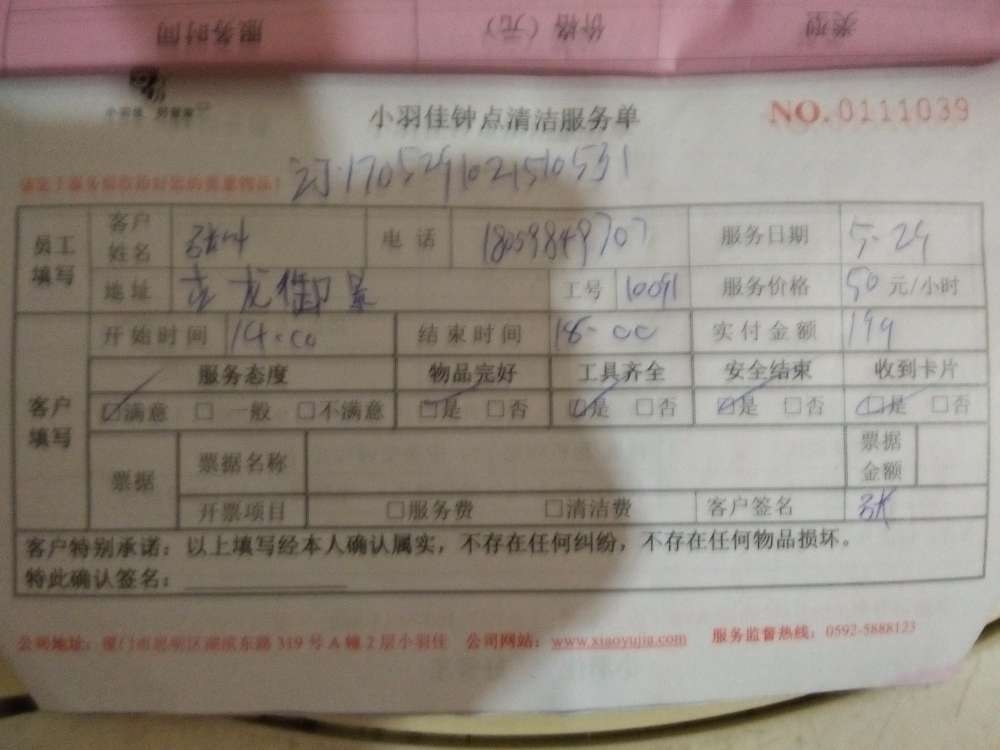 服务时间 价格（元） 类型
小羽佳
小羽佳钟点清洁服务单
NO.0111039
1705291021510531
员工填写 客户姓名 电话 18059849707 服务日期 5-29
地址 龙御景 工号 10091 服务价格 50 元/小时
客户填写 开始时间 14:00 结束时间 18:00 实付金额 199
服务态度 物品完好 工具齐全 安全结束 收到卡片
☑满意 □一般 □不满意 ☑是 □否 ☑是 □否 ☑是 □否 ☑是 □否
票据 票据名称 票据金额
开票项目 □服务费 □清洁费 客户签名 张
客户特别承诺：以上填写经本人确认属实，不存在任何纠纷，不存在任何物品损坏。
特此确认签名：
公司地址：厦门市思明区湖滨东路 319 号 A 幢 2 层小羽佳 公司网站：www.xiaoyujia.com 服务监督热线：0592-5888123